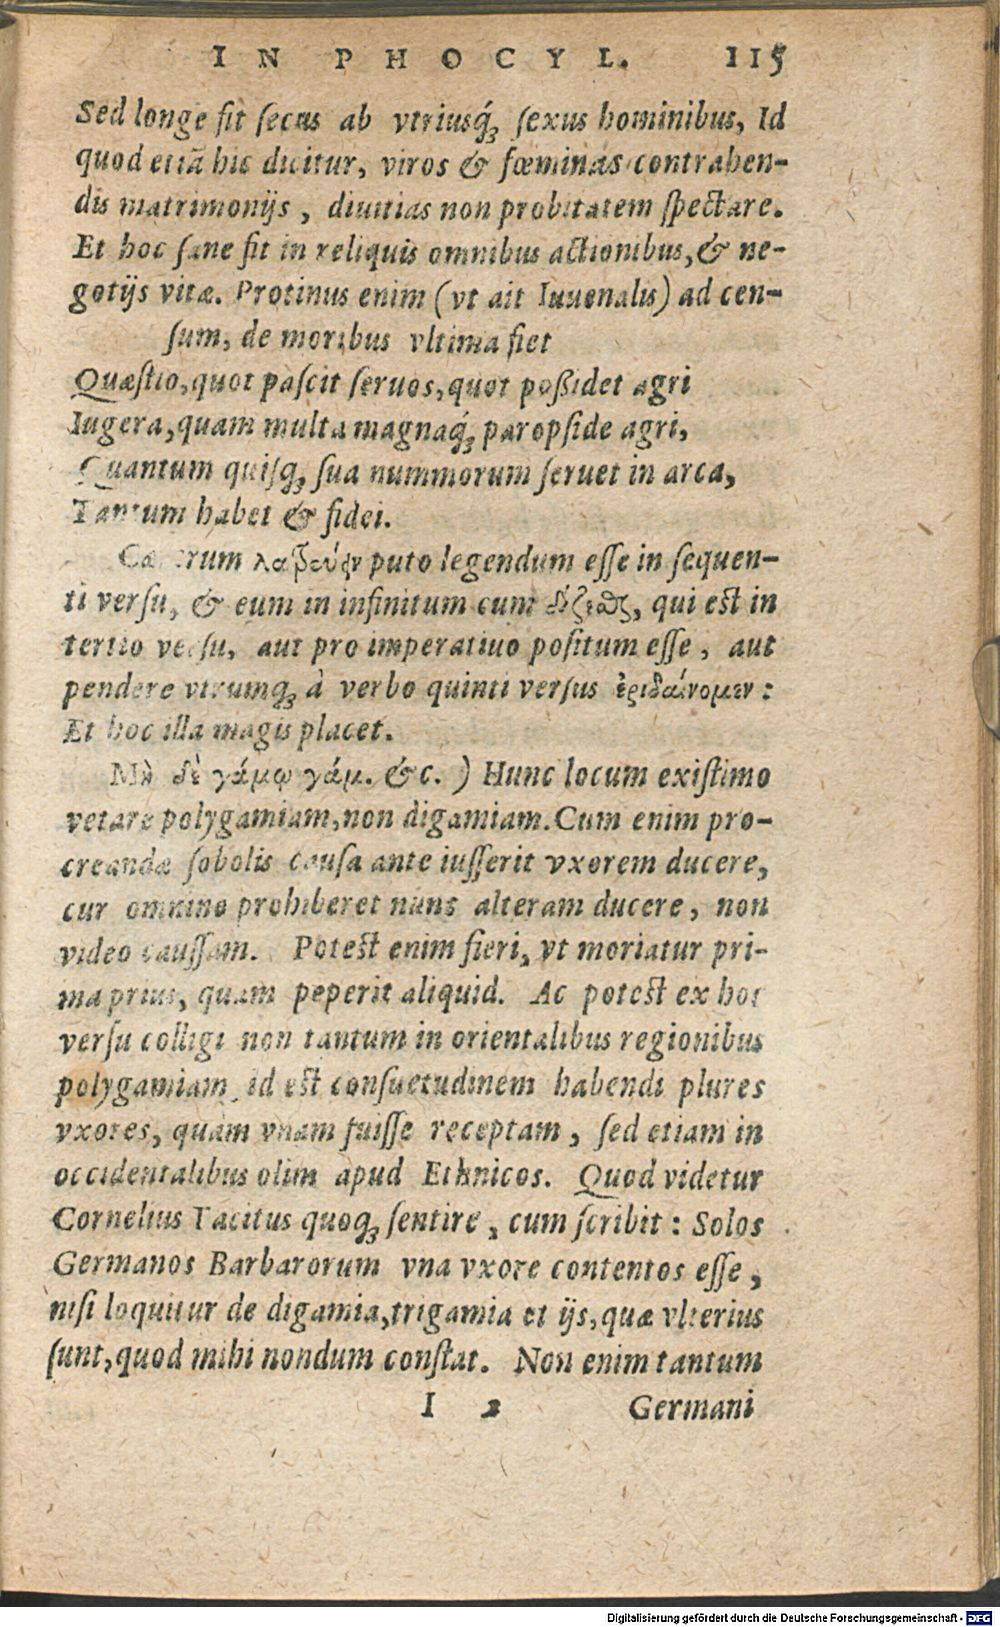 IN PHOCYL. 115
Sed longe fit secus ab vtriusq́; sexus hominibus, Id
quod etiã hic dicitur, viros & fœminas contrahen-
dis matrimonijs, diuitias non probitatem spectare.
Et hoc sane fit in reliquis omnibus actionibus, & ne-
gotijs vitæ. Protinus enim (vt ait Iuuenalis) ad cen-
sum, de moribus vltima fiet
Quæstio, quot pascit seruos, quot poßidet agri
Iugera, quam multa magnaq́; paropside agri,
Quantum quisq; sua nummorum seruet in arca,
Tantum habet & fidei.
Cæterum puto legendum esse in sequen-
ti versu, & eum in infinitum cum qui est in
tertio versu, aut pro imperatiuo positum esse, aut
pendere vtrumq; à verbo quinti versus ἐριδαίνομεν:
Et hoc illa magis placet.
Μὴ δὲ γάμῳ γάμ. &c.) Hunc locum existimo
vetare polygamiam, non digamiam. Cum enim pro-
creandæ sobolis causa ante iusserit vxorem ducere,
cur omnino prohiberet nunc alteram ducere, non
video caussam. Potest enim fieri, vt moriatur pri-
ma prius, quam peperit aliquid. Ac potest ex hoc
versu colligi non tantum in orientalibus regionibus
polygamiam, id est consuetudinem habendi plures
vxores, quàm vnam fuisse receptam, sed etiam in
occidentalibus olim apud Ethnicos. Quod videtur
Cornelius Tacitus quoq; sentire, cum scribit: Solos
Germanos Barbarorum vna vxore contentos esse,
nisi loquitur de digamia, trigamia et ijs, quæ vlterius
sunt, quod mihi nondum constat. Non enim tantum
I 2 Germani
Digitalisierung gefördert durch die Deutsche Forschungsgemeinschaft - DFG